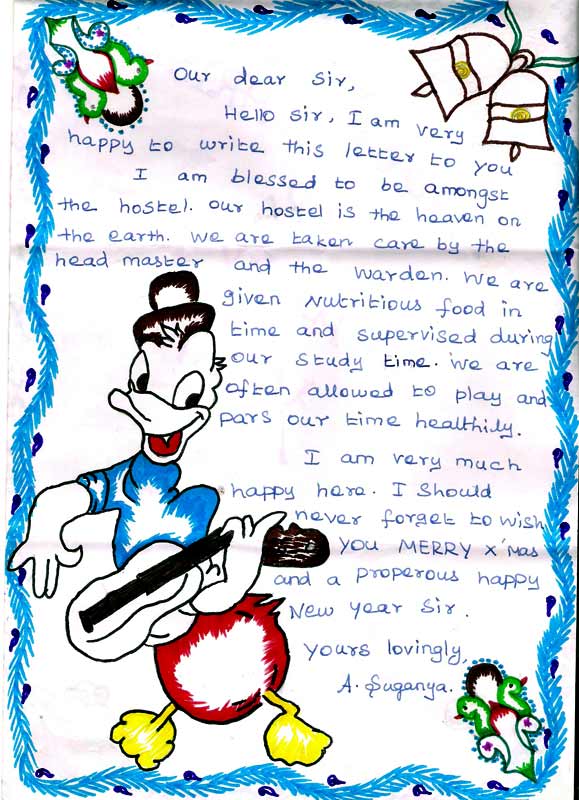 Our dear Sir,
Hello Sir, I am very
happy to write this letter to you
I am blessed to be amongst
the hostel. Our hostel is the heaven on
the earth. We are taken care by the
head master and the warden. We are
given Nutritious food in
time and supervised during
our study time. We are
often allowed to play and
pars our time healthily.
I am very much
happy here. I Should
never forget to wish
you MERRY X'mas
and a Properous happy
New year Sir.
Yours lovingly,
A. Suganya.